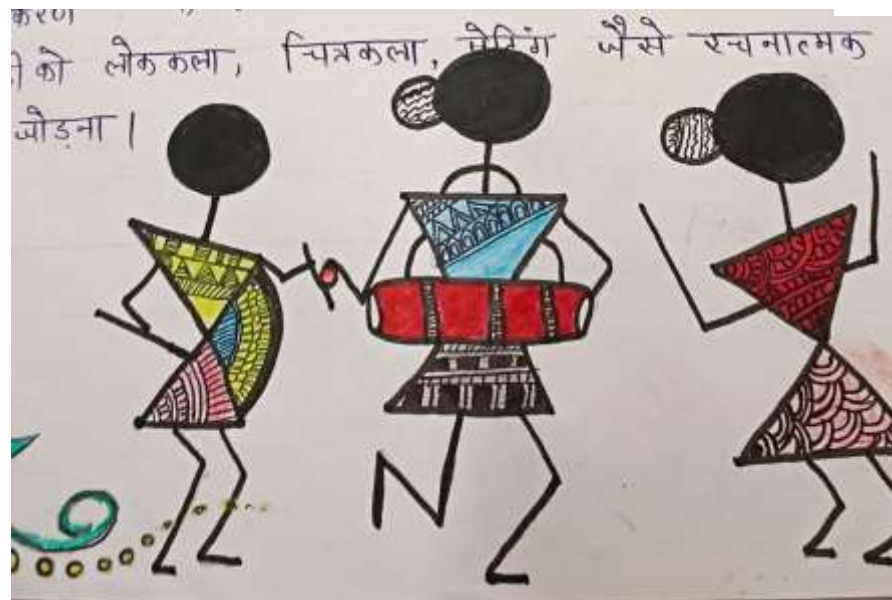 करण
को लोककला, चित्रकला, पेटिंग जैसे रचनात्मक
जोड़ना |